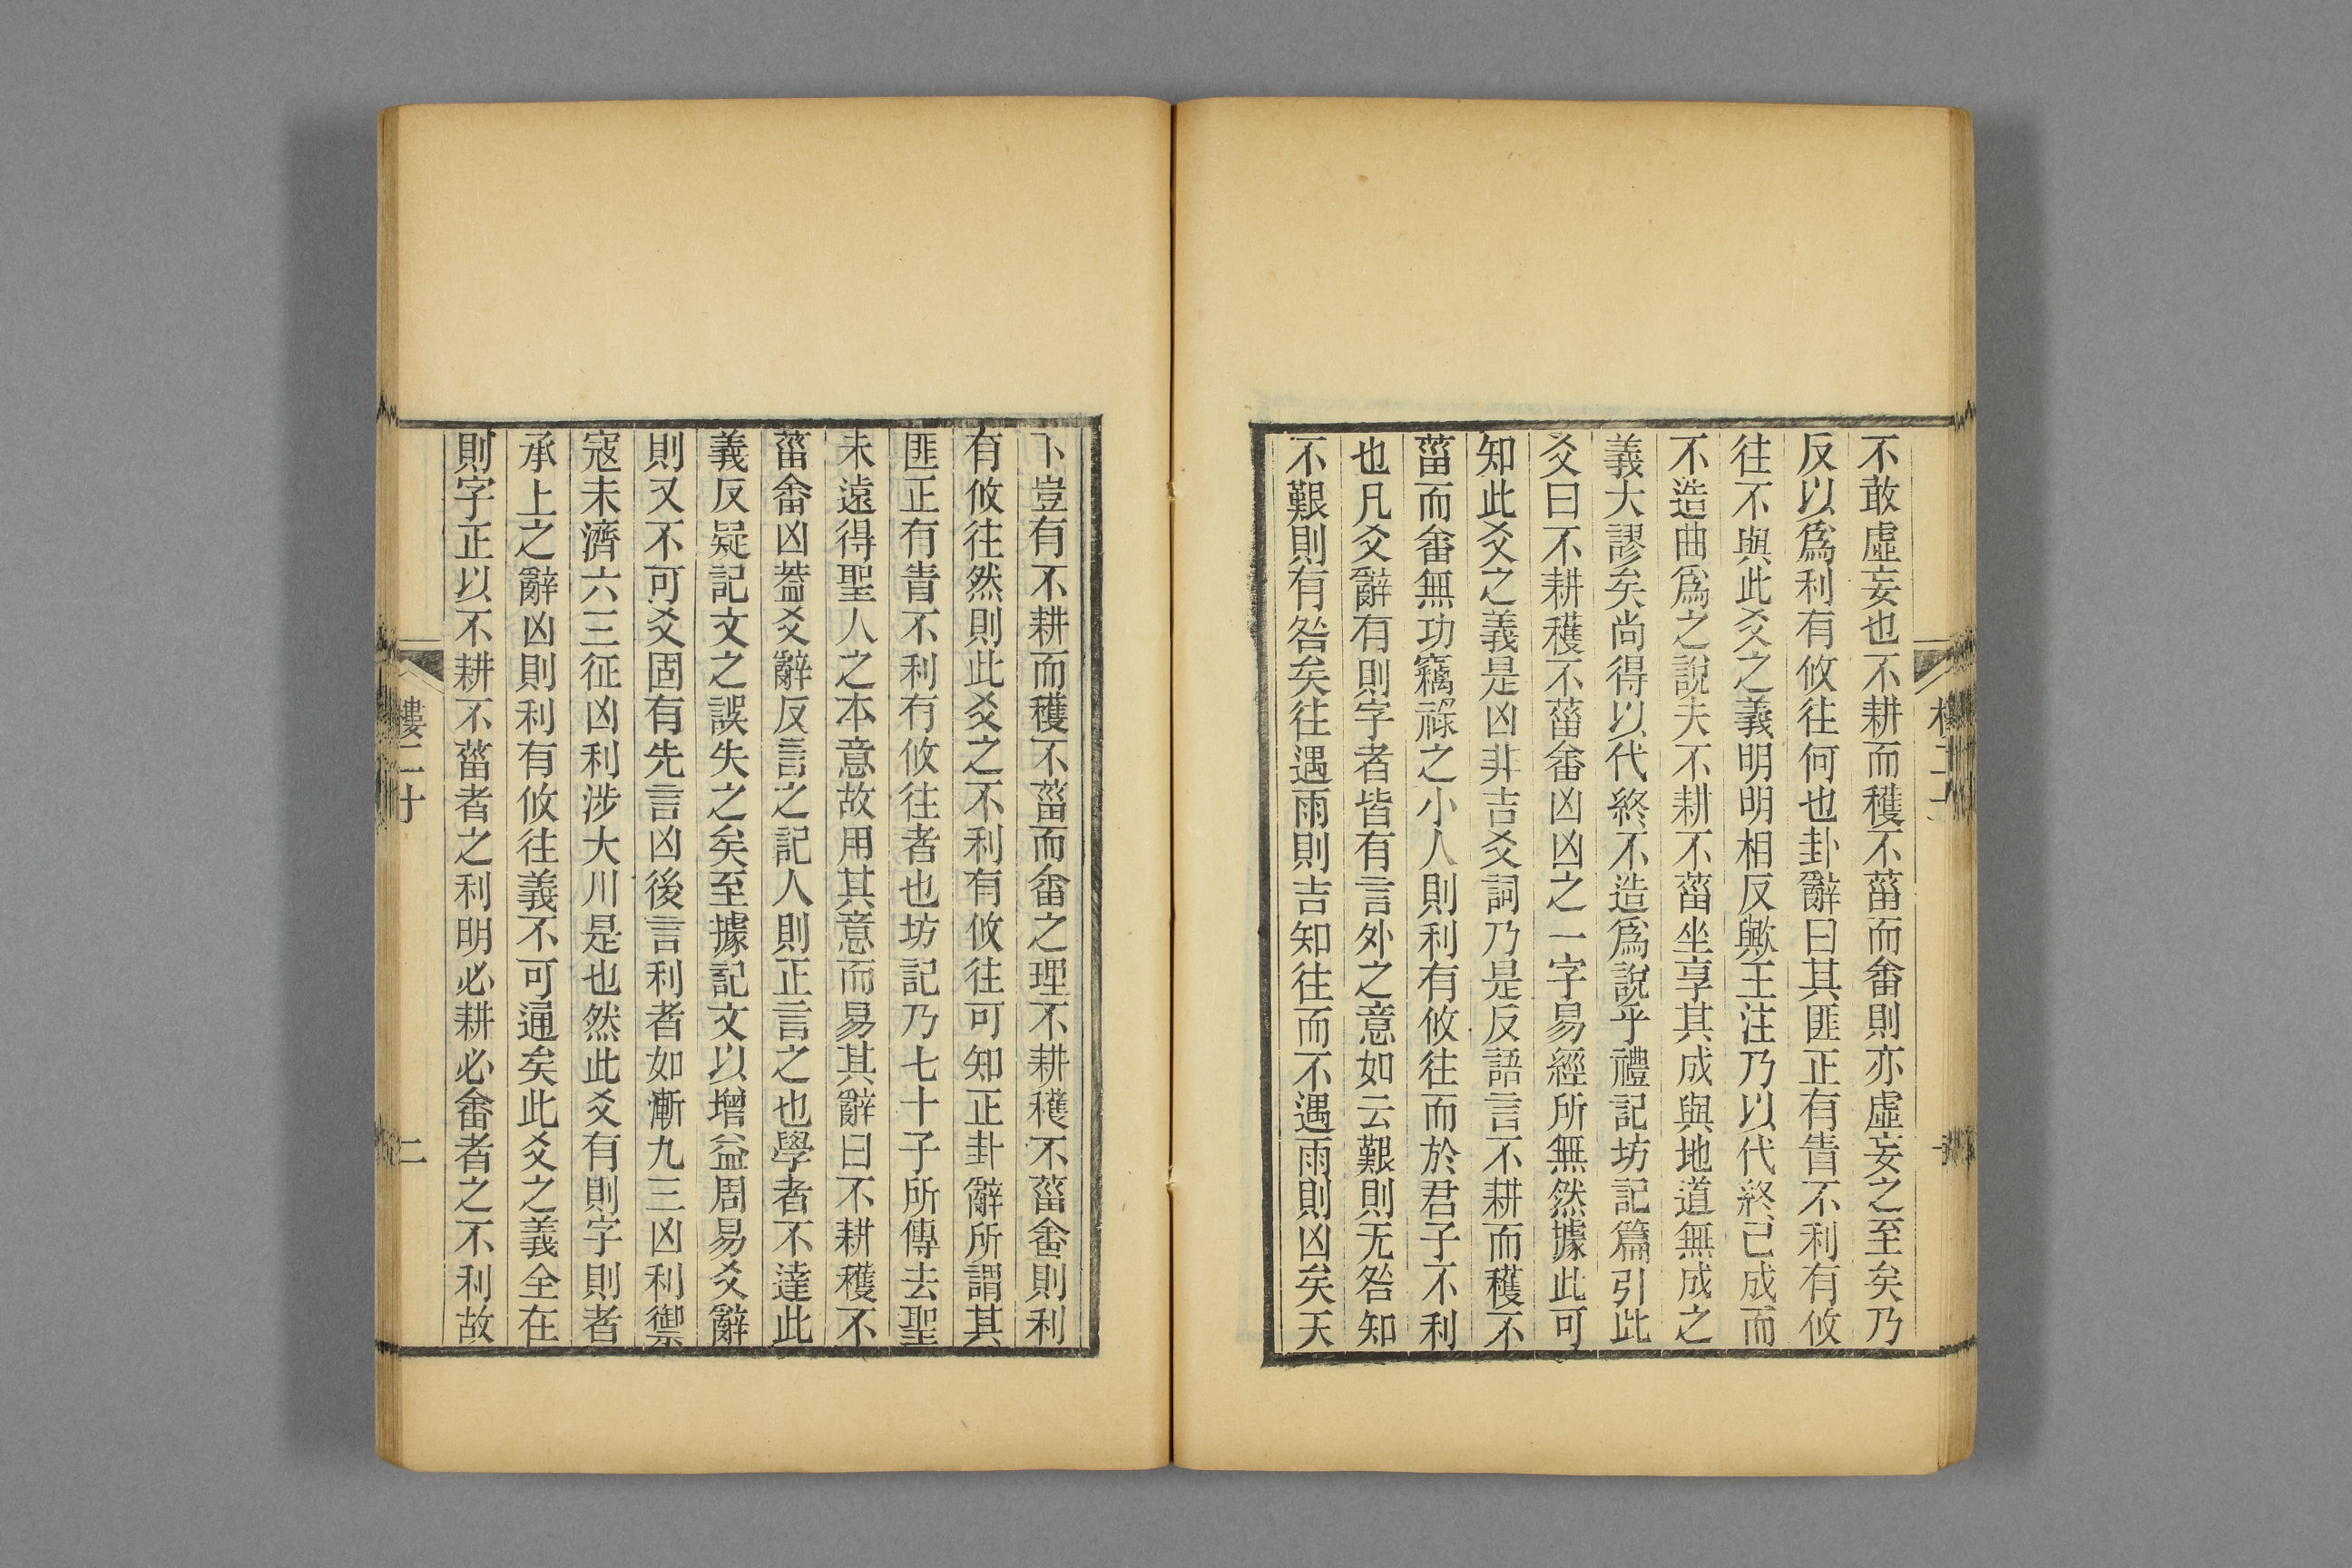 不敢虛妄也不耕而穫不菑而畬則亦虛妄之至矣乃
反以爲利有攸往何也卦辭曰其匪正有眚不利有攸
往不與此爻之義明明相反歟王注乃以代終已成而
不造曲爲之說夫不耕不菑坐享其成與地道無成之
義大謬矣尚得以代終不造爲說乎禮記坊記篇引此
爻曰不耕穫不菑畬凶凶之一字易經所無然據此可
知此爻之義是凶非吉爻詞乃是反語言不耕而穫不
菑而畬無功竊祿之小人則利有攸往而於君子不利
也凡爻辭有則字者皆有言外之意如云艱則无咎知
不艱則有咎矣往遇雨則吉知往而不遇雨則凶矣天
下豈有不耕而穫不菑而畬之理不耕穫不菑畬則利
有攸往然則此爻之不利有攸往可知正卦辭所謂其
匪正有眚不利有攸往者也坊記乃七十子所傳去聖
未遠得聖人之本意故用其意而易其辭曰不耕穫不
菑畬凶葢爻辭反言之記人則正言之也學者不達此
義反疑記文之誤失之矣至據記文以增益周易爻辭
則又不可爻固有先言凶後言利者如漸九三凶利禦
寇未濟六三征凶利涉大川是也然此爻有則字則者
承上之辭凶則利有攸往義不可通矣此爻之義全在
則字正以不耕不菑者之利明必耕必畬者之不利故
樓二十
二